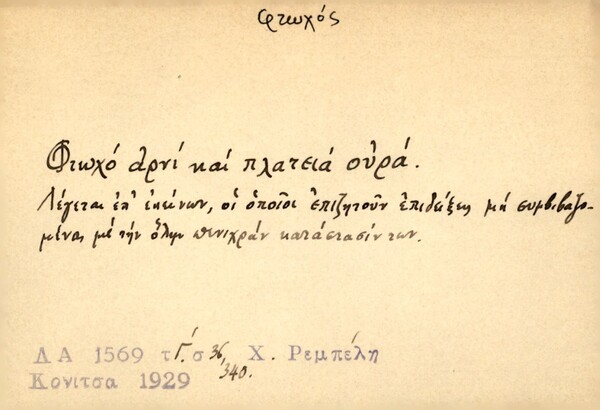 φτωχός
Φτωχό ἀρνί καί πλατειά οὐρά.
Λέγεται ἐπ' ἐκείνων, οἱ ὁποῖοι ἐπιζητοῦν ἐπιδείξεις μή συμβιβαζο-
μένας μέ τήν ὅλην πενιχράν κατάστασίν των.
ΛΑ 1569 τ. Γ΄ σ 36, Χ. Ρεμπέλη
340.
Κονιτσα 1929